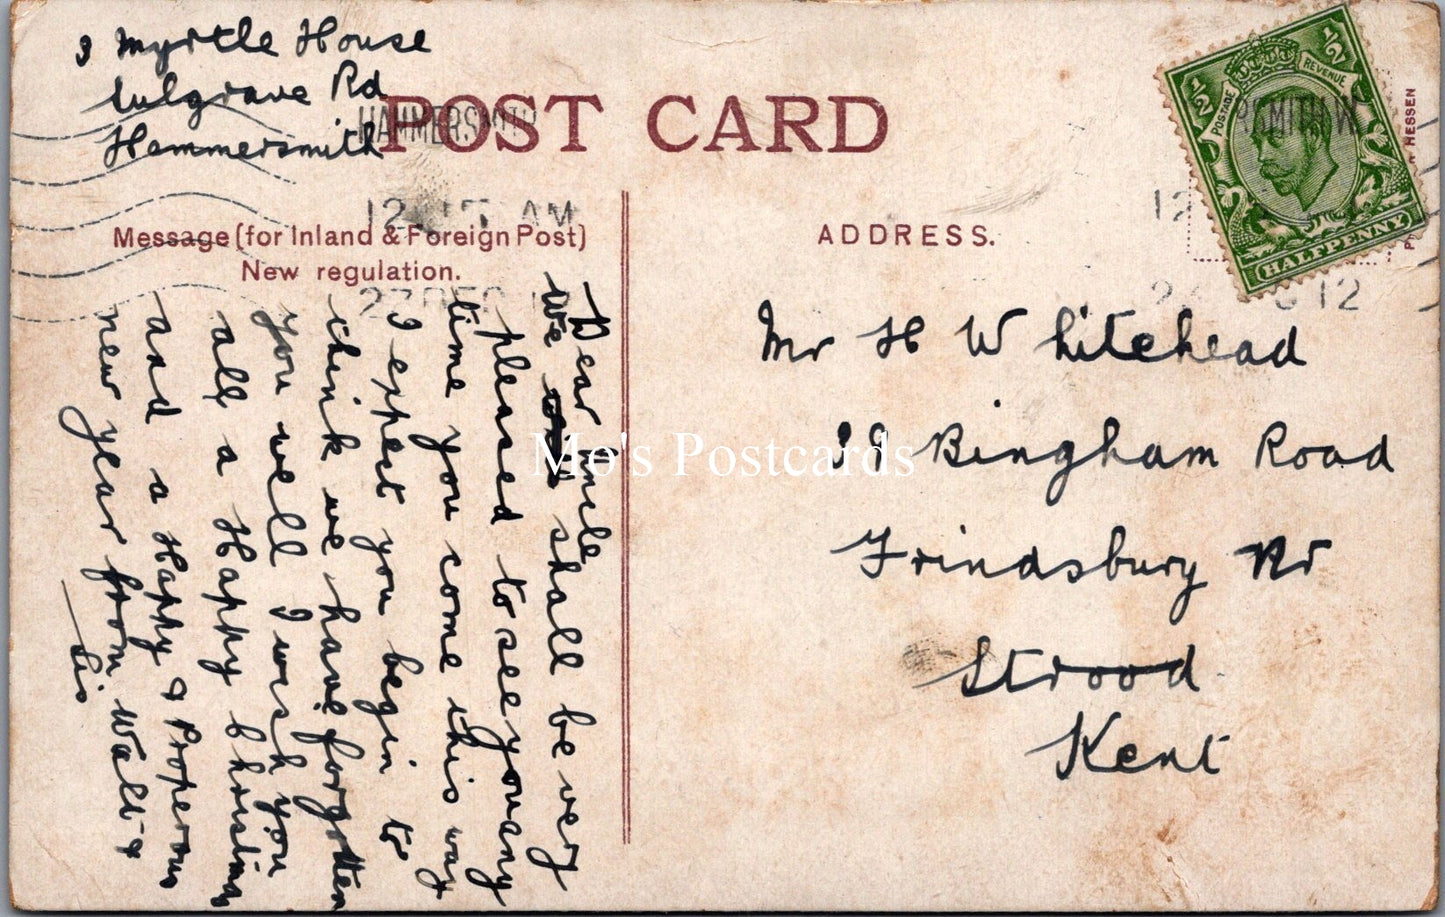 3 Myrtle House
Lulgrave Rd
Hammersmith
POST CARD
HAMMERSMITH
12 15 AM
27 DEC 12
Message (for Inland & Foreign Post)
New regulation.
ADDRESS.
Dear Uncle
We shall be very
pleased to see you any
time you come this way
I expect you begin to
think we have forgotten
you well I wish you
all a Happy Christmas
and a Happy & Properous
new year from Walt &
Lis
Mr H Whitehead
Bingham Road
Frindsbury Nr
Strood
Kent
POSTAGE
REVENUE
½
½
HALFPENNY
RSMITH.W
12
12
HESSEN
Mo's Postcards